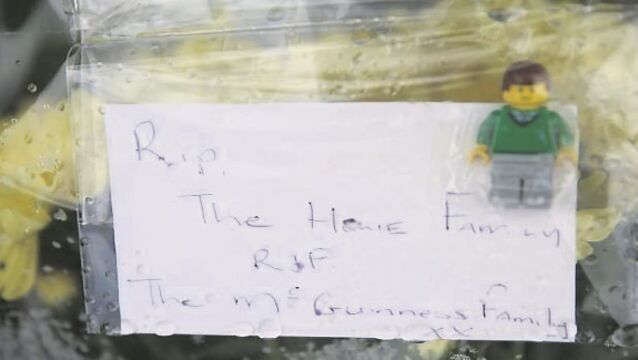 R.I.P.
The Hawe Family
R I P
The Mc Guinness Family
xx